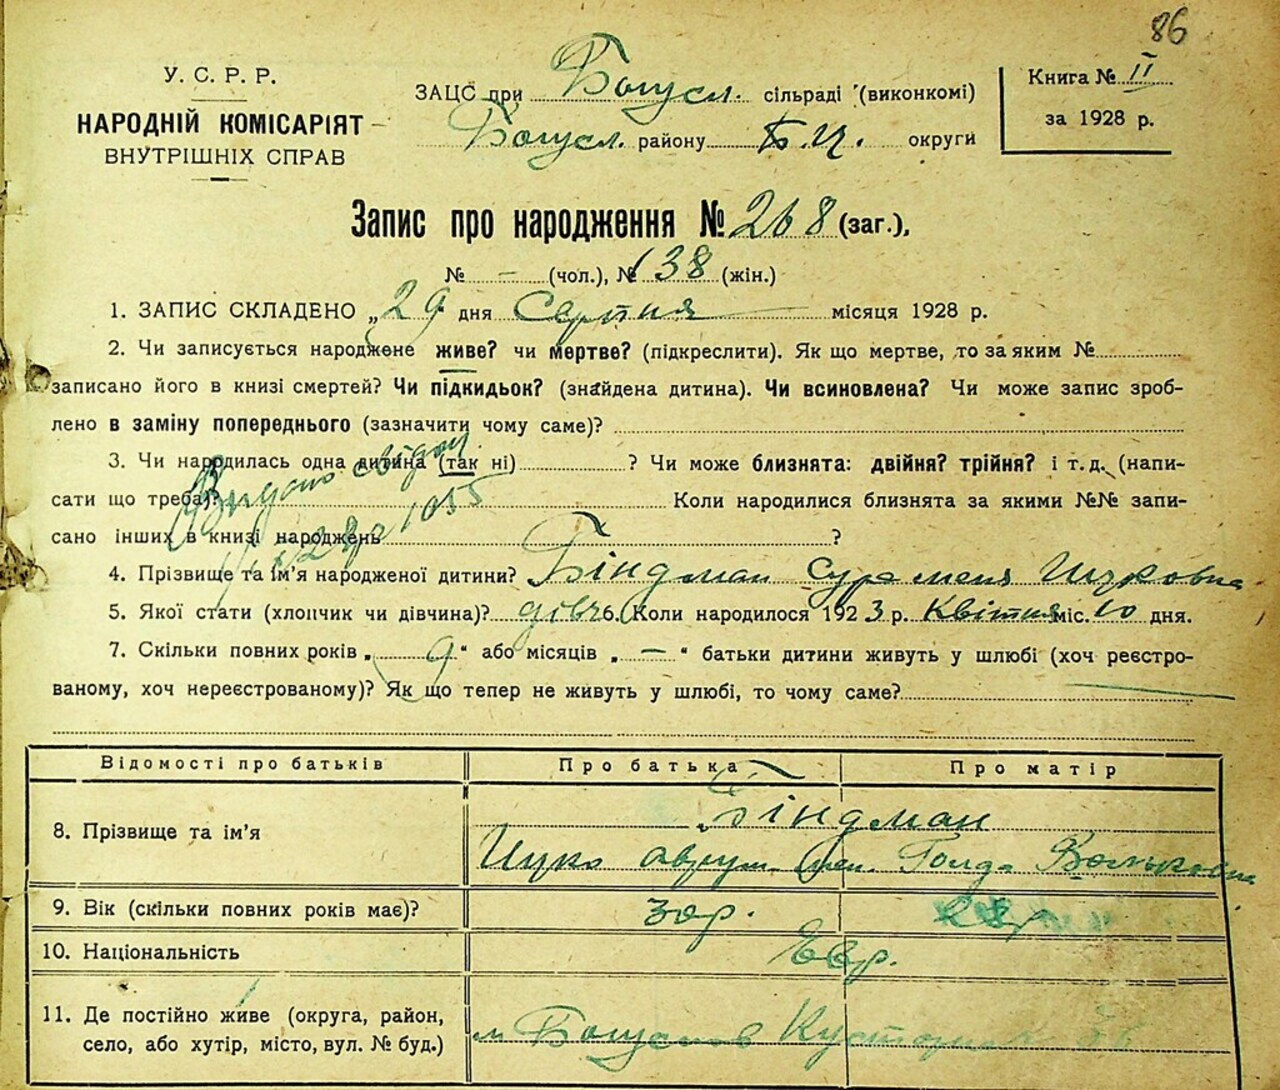 86
У. С. Р. Р.
НАРОДНІЙ КОМІСАРІЯТ
ВНУТРІШНІХ СПРАВ
ЗАЦС при Богусл. сільраді (виконкомі)
Богусл. району Б.Ц. округи
Книга № II
за 1928 р.
Запис про народження № 268 (заг.),
№ – (чол.), № 138 (жін.)
1. ЗАПИС СКЛАДЕНО „29 дня Серпня місяця 1928 р.
2. Чи записується народжене живе? чи мертве? (підкреслити). Як що мертве, то за яким №
записано його в книзі смертей? Чи підкидьок? (знайдена дитина). Чи всиновлена? Чи може запис зроб-
лено в заміну попереднього (зазначити чому саме)?
3. Чи народилась одна дитина (так ні) ? Чи може близнята: двійня? трійня? і т. д. (напи-
сати що треба)? Коли народилися близнята за якими №№ запи-
сано інших в книзі народжень ?
Видано свідоц
4. Прізвище та ім'я народженої дитини? Біндман Сура меня Ицковна
5. Якої стати (хлопчик чи дівчина)? дівч 6. Коли народилося 1923 р. Квітня міс. 10 дня.
7. Скільки повних років „ 9 “ або місяців „ – “ батьки дитини живуть у шлюбі (хоч реєстро-
ваному, хоч нереєстрованому)? Як що тепер не живуть у шлюбі, то чому саме?
Відомості про батьків Про батька Про матір
8. Прізвище та ім'я Біндман
Ицко Аврум Голда Вольковна
9. Вік (скільки повних років має)? 30р. 28р
10. Національність Евр.
11. Де постійно живе (округа, район,
село, або хутір, місто, вул. № буд.) м Богуслав